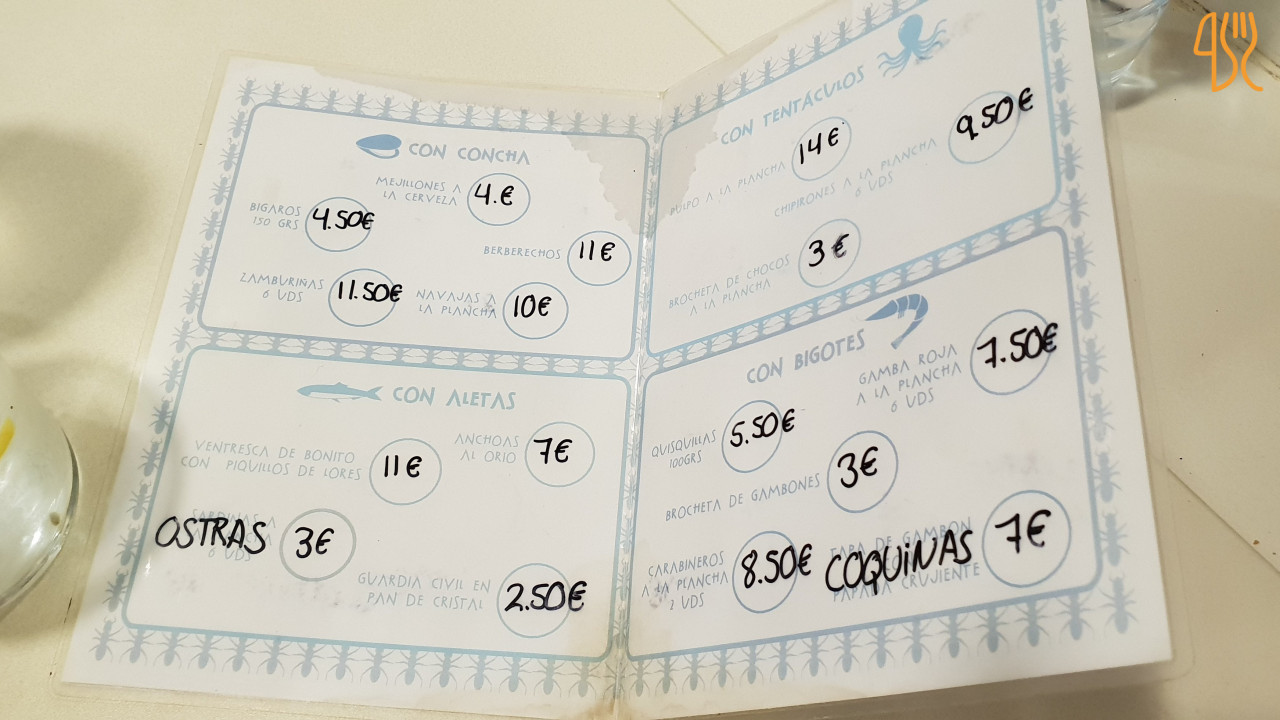 CON CONCHA
MEJILLONES A
LA CERVEZA
4.€
BIGAROS
150 GRS
4.50€
BERBERECHOS
11€
ZAMBURIÑAS
6 UDS
11.50€
NAVAJAS A
LA PLANCHA
10€
CON ALETAS
VENTRESCA DE BONITO
CON PIQUILLOS DE LORES
11€
ANCHOAS
AL ORIO
7€
SARDINAS A
OSTRAS
6 UDS
3€
GUARDIA CIVIL EN
PAN DE CRISTAL
2.50€
CON TENTÁCULOS
PULPO A LA PLANCHA
14€
CHIPIRONES A LA PLANCHA
6 UDS
9,50€
BROCHETA DE CHOCOS
A LA PLANCHA
3€
CON BIGOTES
GAMBA ROJA
A LA PLANCHA
6 UDS
7.50€
QUISQUILLAS
100GRS
5.50€
BROCHETA DE GAMBONES
3€
CARABINEROS
A LA PLANCHA
2 UDS
8.50€
TAPA DE GAMBON
COQUINAS
PAPADA CRUJIENTE
7€